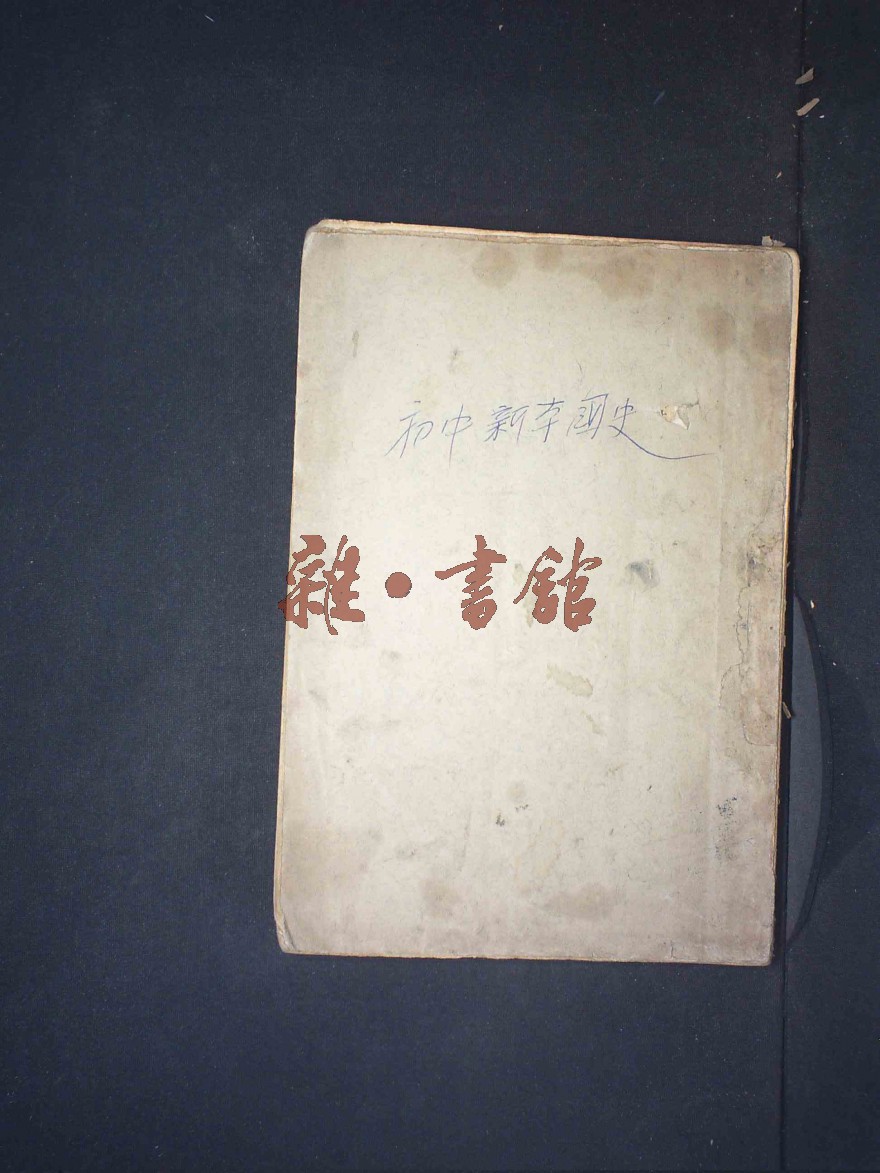 初中新本國史
雜·書館